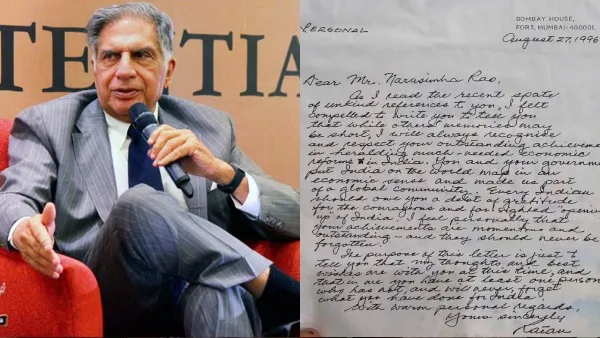 TENTIA
PERSONAL
BOMBAY HOUSE,
FORT, MUMBAI-400001.
August 27, 1996
Dear Mr. Narasimha Rao,
As I read the recent spate
of unkind references to you, I felt
compelled to write you to tell you
that while others memories may
be short, I will always recognise
and respect your outstanding achievement
in heralding much-needed economic
reforms in India. You and your government
put India on the world map in an
economic sense and made us part
of a global community. Every Indian
should owe you a debt of gratitude
for the courageous and far-sighted "opening
up" of India. I feel personally that
your achievements are momentous and
outstanding - and they should never be
forgotten.
The purpose of this letter is just to
tell you that my thoughts and best
wishes are with you at this time, and
that in me you have at least one person
who has not, and will never, forget
what you have done for India.
With warm personal regards,
Yours sincerely
Ratan